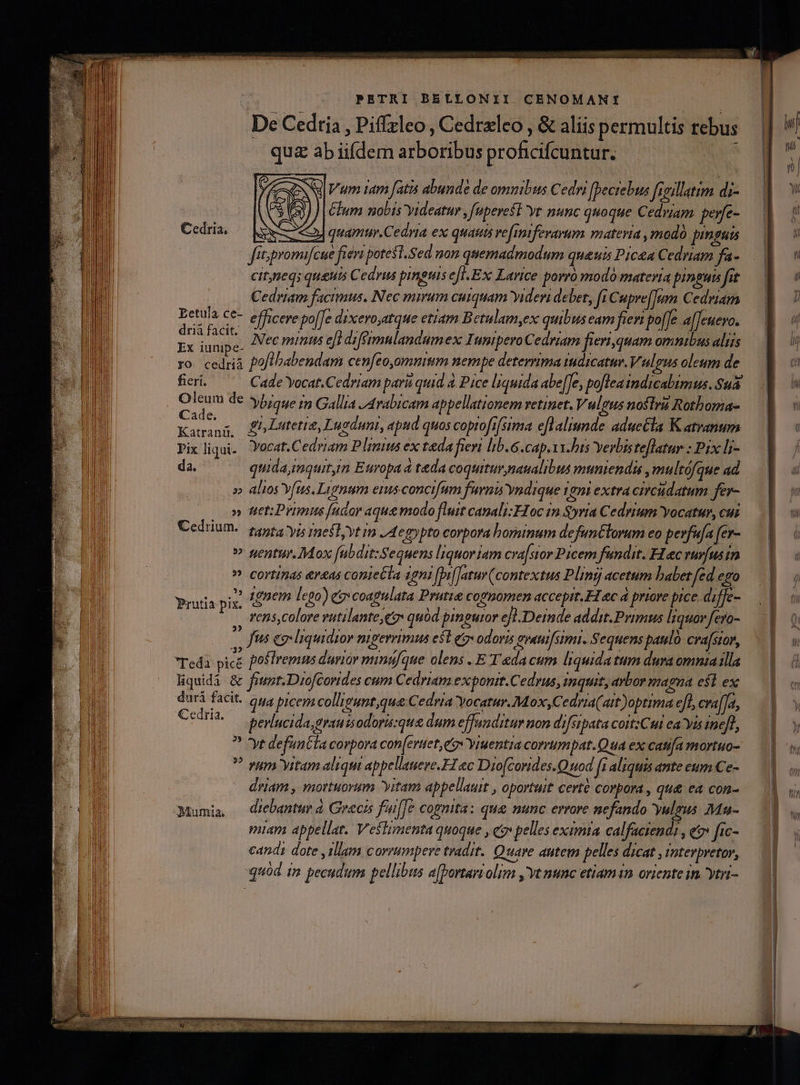 PETRI BELLONII CENOMANI
De Cedria, Pissæleo, Cedræleo, & aliis permultis rebus
quæ ab iisdem arboribus proficiscuntur.
Vum iam satis abundè de omnibus Cedri speciebus sigillatim di-
ctum nobis videatur, superest vt nunc quoque Cedriam perse-
Cedria. quamur. Cedria ex quauis resiniferarum materia, modò pinguis
sit, promiscue fieri potest. Sed non quemadmodum quæuis Picea Cedriam fa-
cit, neq; quæuis Cedrus pinguis est. Ex Larice porrò modò materia pinguis sit
Cedriam facimus. Nec mirum cuiquam videri debet, si Cupressum Cedriam
Betula ce- efficere posse dixero, atque etiam Betulam, ex quibus eam fieri posse asseuero.
driā facit.
Ex iunipe- Nec minus est dissimulandum ex Iunipero Cedriam fieri, quam omnibus aliis
ro cedriā posthabendam censeo, omnium nempe deterrima iudicatur. Vulgus oleum de
fieri. Cade vocat. Cedriam parū quid à Pice liquida abesse, postea indicabimus. Suā
Oleum de vbique in Gallia Arabicam appellationem retinet. Vulgus nostrū Rothoma-
Cade.
Katranū. gi, Lutetiæ, Lugduni, apud quos copiosissima est aliunde aduecta Katranum
Pix liqui- vocat. Cedriam Plinius ex tæda fieri lib. 6. cap. xx. his verbis testatur: Pix li-
da. quida, inquit, in Europa à tæda coquitur, naualibus muniendis, multósque ad
» alios vsus. Lignum eius concisum furnis vndique igni extra circūdatum fer-
» uet: Primus sudor aquæ modo fluit canali: Hoc in Syria Cedrium vocatur, cui
Cedrium. tanta vis inest, vt in Aegypto corpora hominum defunctorum eo perfusa ser-
» uentur. Mox subdit: Sequens liquor iam crassior Picem fundit. Hæc rursus in
» cortinas æreas coniecta igni spissatur (contextus Plinij acetum habet sed ego
» ignem lego) & coagulata Prutiæ cognomen accepit. Hæc à priore pice diffe-
Prutia pix.
rens, colore rutilante, & quòd pinguior est. Deinde addit. Primus liquor fero-
» fus & liquidior nigerrimus est & odoris grauissimi. Sequens paulò crassior,
»
Teda picē postremus durior minúsque olens. E Tæda cum liquida tum dura omnia illa
liquidā & fiunt. Dioscorides cum Cedriam exponit. Cedrus, inquit, arbor magna est ex
durā facit. qua picem colligunt, quæ Cedria vocatur. Mox, Cedria (ait) optima est, crassa,
Cedria. perlucida, grauis odoris: quæ dum effunditur non dissipata coit: Cui ea vis inest,
» vt defuncta corpora conseruet, & viuentia corrumpat. Qua ex causa mortuo-
» rum vitam aliqui appellauere. Hæc Dioscorides. Quod si aliquis ante eum Ce-
driam, mortuorum vitam appellauit, oportuit certè corpora, quæ ea con-
Mumia. diebantur à Græcis fuisse cognita: quæ nunc errore nefando vulgus Mu-
miam appellat. Vestimenta quoque, & pelles eximia calfaciendi, & sic-
candi dote, illam corrumpere tradit. Quare autem pelles dicat, interpretor,
quòd in pecudum pellibus asportari olim, vt nunc etiam in oriente in vtri-